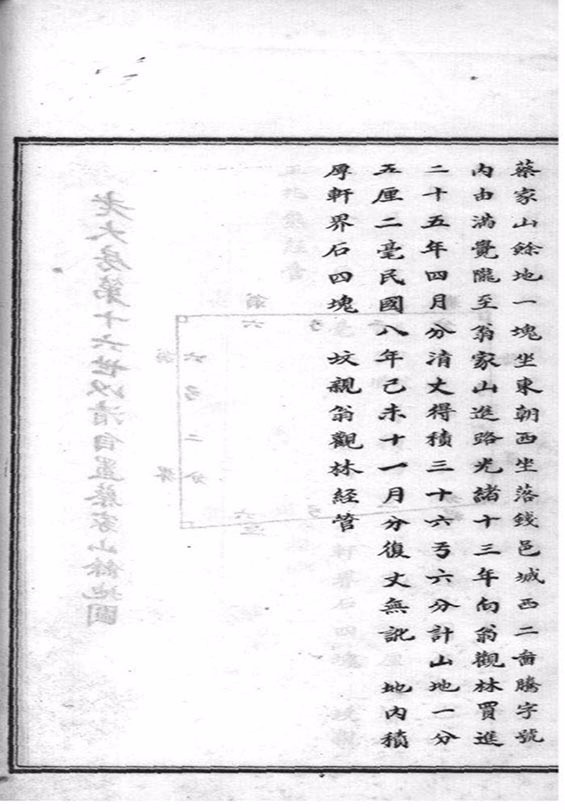 蔡家山餘地一塊坐東朝西坐落錢邑城西二啚騰字號
內由滿覺隴至翁家山進路光緒十三年向翁觀林買進
二十五年四月分清丈得積三十六弓六分計山地一分
五厘二毫民國八年己未十一月分復丈無訛 地內積
厚軒界石四塊 墳親翁觀林經管
老大房第十六世以清自置蔡家山餘地圖